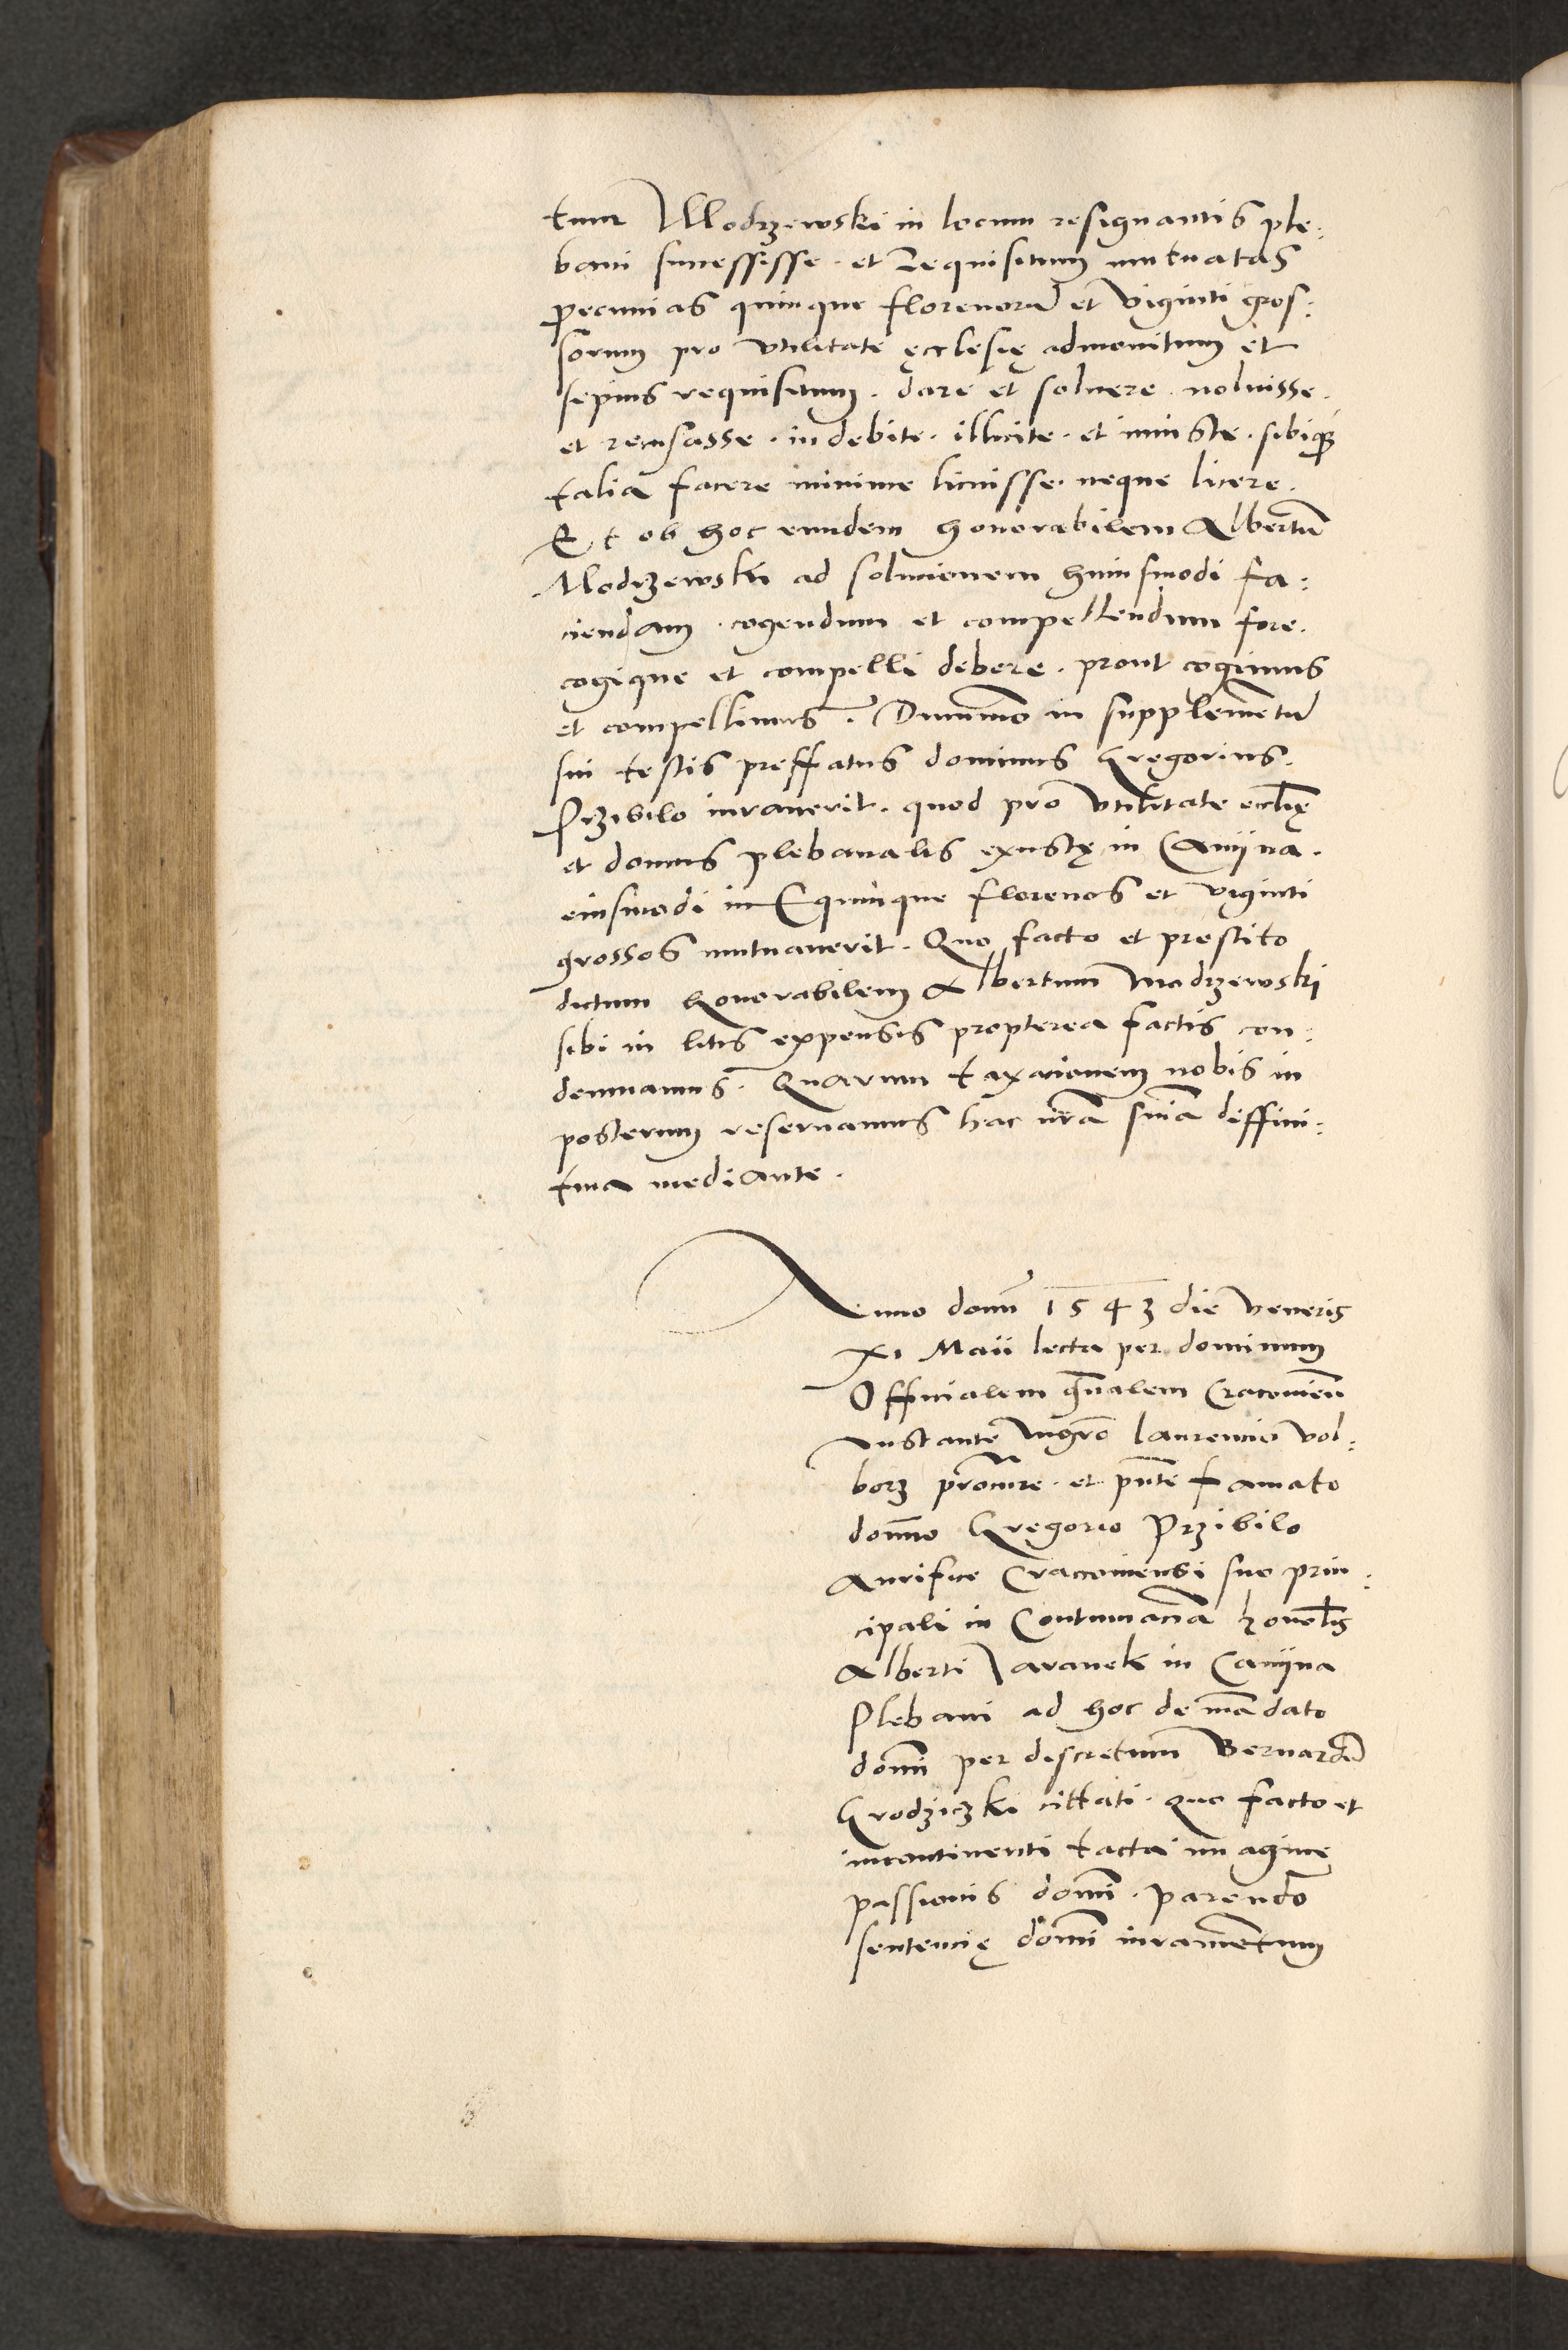 tum Modrzewski in locum resignantis ple:
bani successisse. et Requisitum mutuatas
pecunias quinque florenorũ et viginti gros:
sorum pro vtilitate ęcclesię admonitum et
sepius requisitum. dare et soluere. noluisse.
et recusasse. indebite. illicite. et iniuste. sibiq;
talia facere minime licuisse. neque licere.
Et ob hoc eundem honorabilem Albertũ
Modrzewski ad solucionem huiusmodi fa:
ciendam. cogendum et compellendum fore.
cogique et compelli debere. prout cogimus
et compellimus. Dummõ in supplementũ
sui testis preffatus dominus Gregorius.
Przibilo iurauerit. quod pro vtilitate eccłię
et domus plebanalis exustę in Camijna.
eiusmodi quinque florenos et viginti
grossos mutuauerit. Quo facto et prestito
dictum honorabilem Albertum Modrzewski
sibi in litis expensis propterea factis con:
demnamus. Quarum taxacionem nobis in
posterum reseruamus hac nr̃a sniã diffini:
tiua mediante.
Anno domĩ 1543 die veneris
XI Maii lecta per dominum
Officialem gñalem Cracouieñ
Instante mgrõ laurencio vol:
borz procur̃e. et pñte famato
domno Gregorio Przibilo
Aurifice Cracouiensi suo prin:
cipali in Contumaciã honołis
Alberti Jaranek in Camijna
Plebani ad hoc de mãdato
domĩ per discretum Bernardũ
Grodziczki cittati. quo facto et
incontinenti tacta imaginę
passionis domĩ. parendo
sentencię domĩ iuramentum